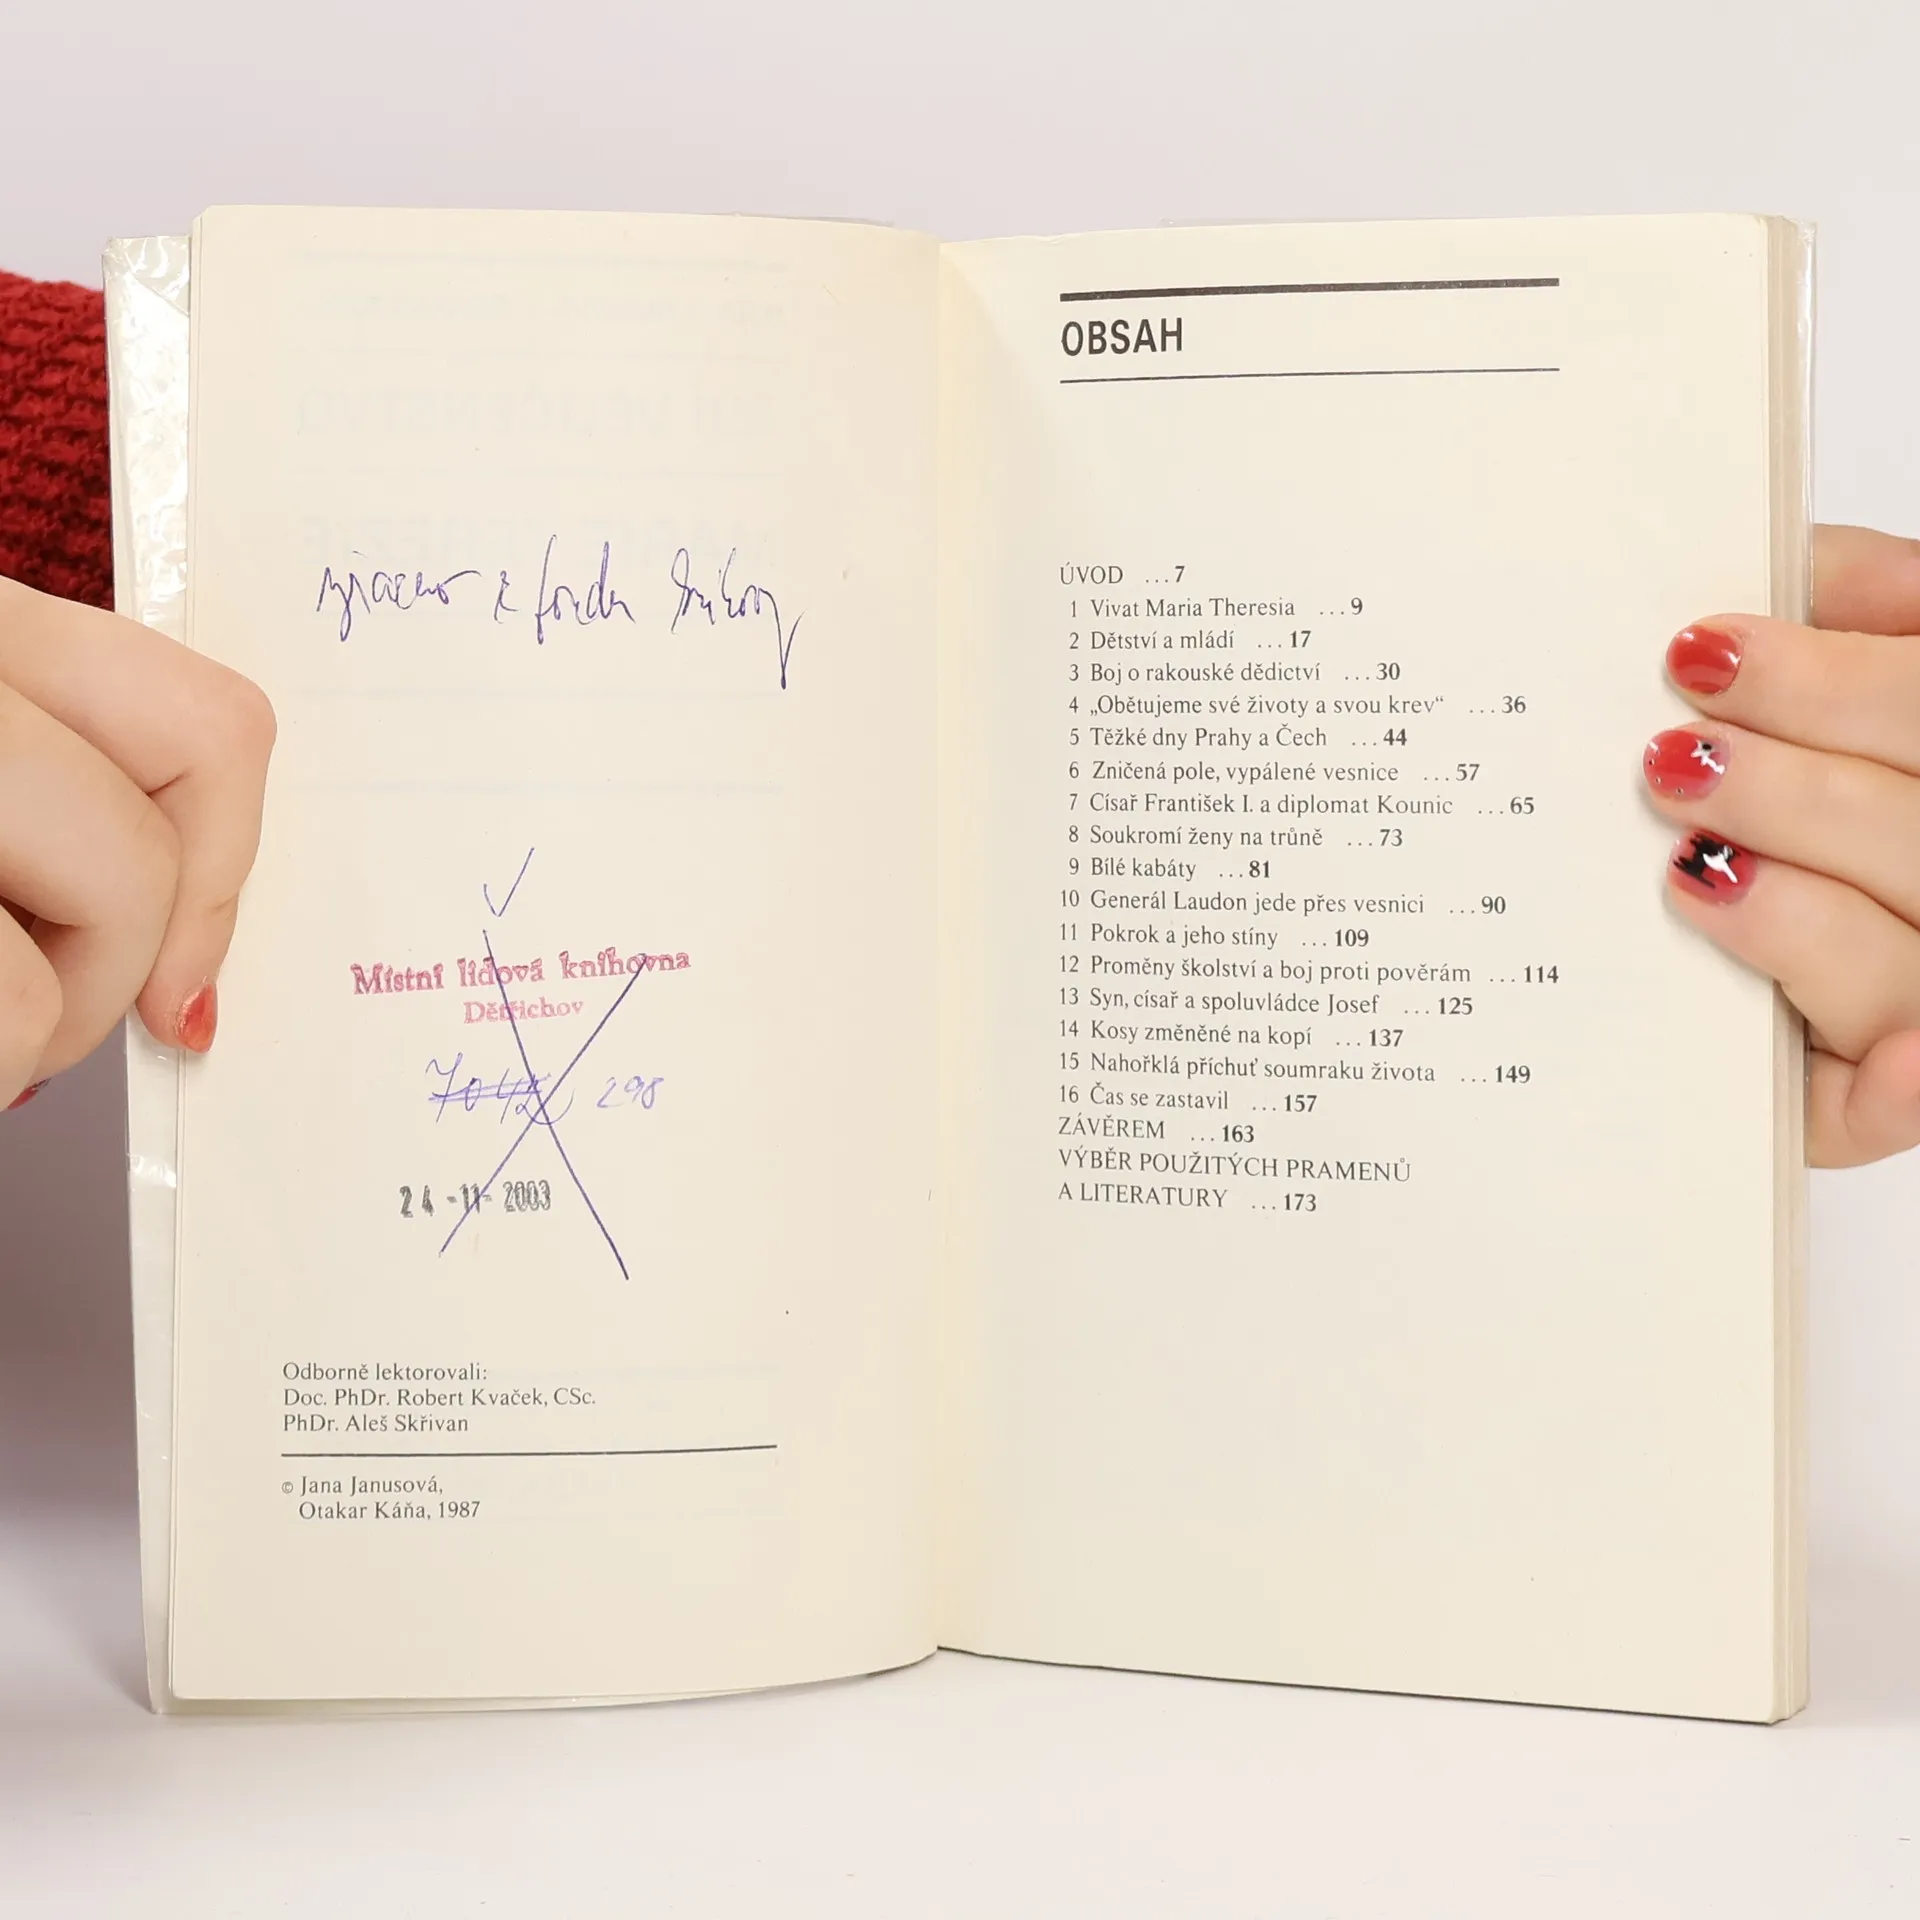 z fondu
Místní lidová knihovna
Dětřichov
298
24 -11- 2003
Odborně lektorovali:
Doc. PhDr. Robert Kvaček, CSc.
PhDr. Aleš Skřivan
© Jana Janusová,
Otakar Káňa, 1987
OBSAH
ÚVOD ...7
1 Vivat Maria Theresia ...9
2 Dětství a mládí ...17
3 Boj o rakouské dědictví ...30
4 „Obětujeme své životy a svou krev“ ...36
5 Těžké dny Prahy a Čech ...44
6 Zničená pole, vypálené vesnice ...57
7 Císař František I. a diplomat Kounic ...65
8 Soukromí ženy na trůně ...73
9 Bílé kabáty ...81
10 Generál Laudon jede přes vesnici ...90
11 Pokrok a jeho stíny ...109
12 Proměny školství a boj proti pověrám ...114
13 Syn, císař a spoluvládce Josef ...125
14 Kosy změněné na kopí ...137
15 Nahořklá příchuť soumraku života ...149
16 Čas se zastavil ...157
ZÁVĚREM ...163
VÝBĚR POUŽITÝCH PRAMENŮ
A LITERATURY ...173